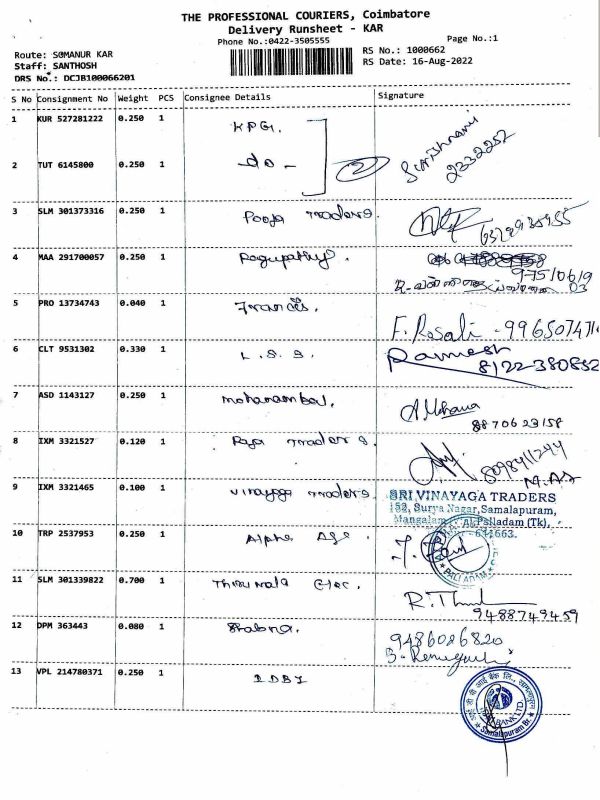 THE PROFESSIONAL COURIERS, Coimbatore
Delivery Runsheet - KAR
Phone No.:0422-3505555
Page No.:1
Route: SOMANUR KAR
RS No.: 1000662
Staff: SANTHOSH
RS Date: 16-Aug-2022
DRS No.: DCJB100066201
S No Consignment No Weight PCS Consignee Details Signature
1 KUR 527281222 0.250 1 KPG.
2 TUT 6145800 0.250 1 -do- 2 2332252
3 SLM 301373316 0.250 1 Pooja Traders.
4 MAA 291700057 0.250 1 Ragupathy.
5 PRO 13734743 0.040 1 Francis. F. Rosali - 996507471
6 CLT 9531302 0.330 1 L.S.S. Ramesh 8122-380852
7 ASD 1143127 0.250 1 Mohanambal. 8870623158
8 IXM 3321527 0.120 1 Raja Traders. 8098411244
9 IXM 3321465 0.100 1 Vinayaga Traders
SRI VINAYAGA TRADERS
152, Surya Nagar, Samalapuram,
Mangalam Palladam (Tk),
641663.
10 TRP 2537953 0.250 1 Alpha Age.
PALLADAM
11 SLM 301339822 0.700 1 Thirumala Elec.
9488749459
12 DPM 363443 0.080 1 Shabna. 9486086820
13 VPL 214780371 0.250 1 IDBI
IDBI BANK LTD.
Samalapuram Br.